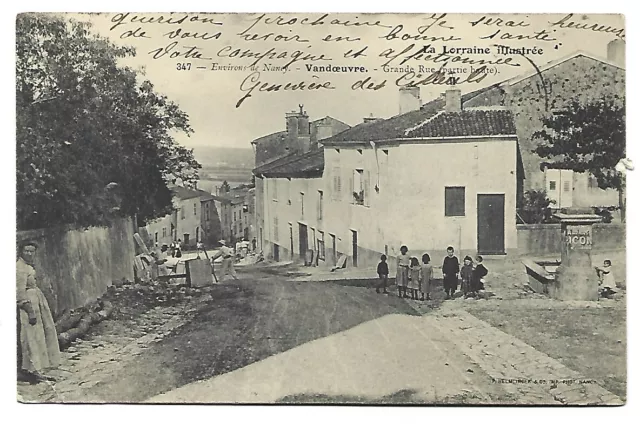 guérison prochaine Je serai heureuse
de vous revoir en bonne santé
Votre compagne et affectionnée
Geneviève des
La Lorraine illustrée
347 — Environs de Nancy. — Vandœuvre. — Grande Rue (partie haute).
PICON